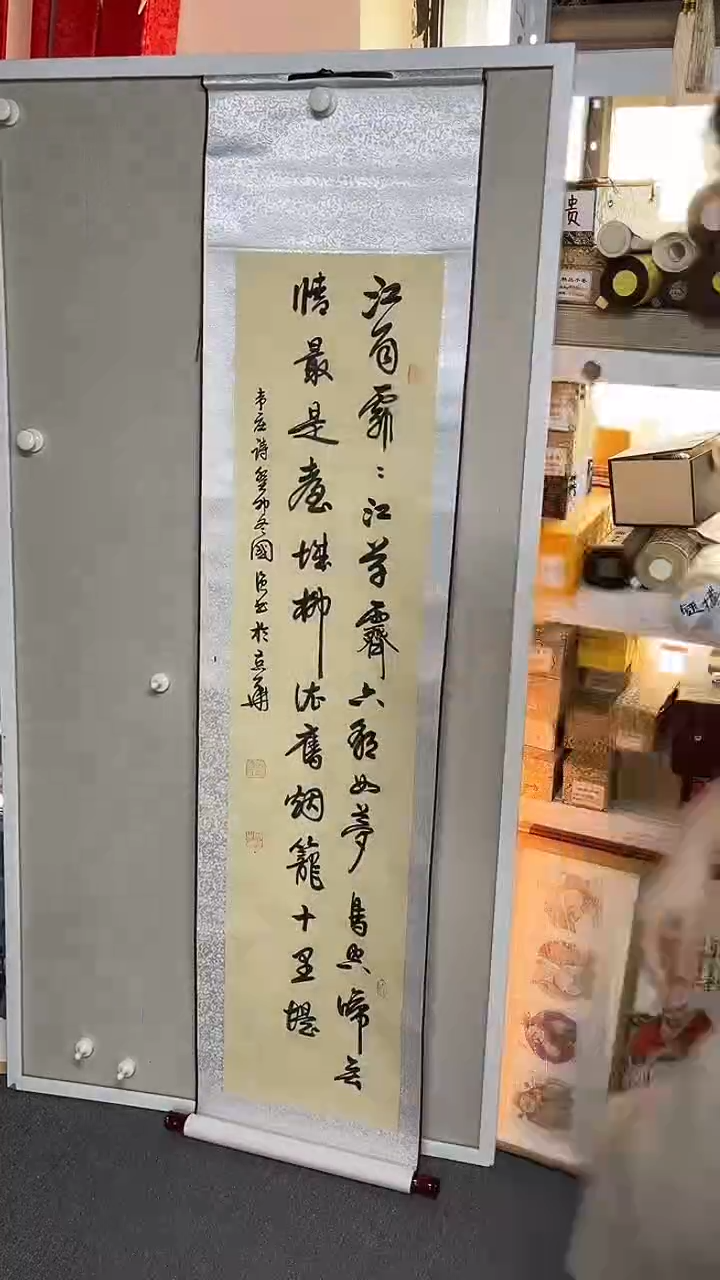 江雨霏〻江草齊六朝如夢鳥空啼无
情最是臺城柳依舊烟籠十里堤
韦庄詩癸卯冬國书於京華
贵